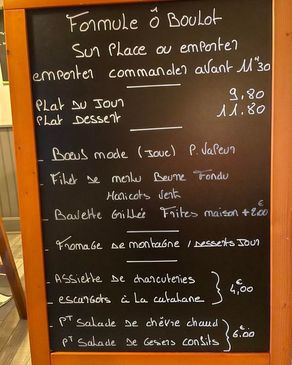 Formule Ô Boulot
Sur Place ou emporter
emporter commander avant 11H30
Plat Du Jour 9,80
Plat Dessert 11.80
- Bœuf mode (Joue) P. Vapeur
- Filet de merlu Beurre Fondu
Haricots Vert
- Bavette Grillée Frites maison + 2€00
- Fromage de montagne / Desserts Jour
- Assiette de charcuteries
- escargots à La catalane } 4€,00
- PT Salade de chèvre chaud
- PT Salade de Gésiers Confits } 6€.00